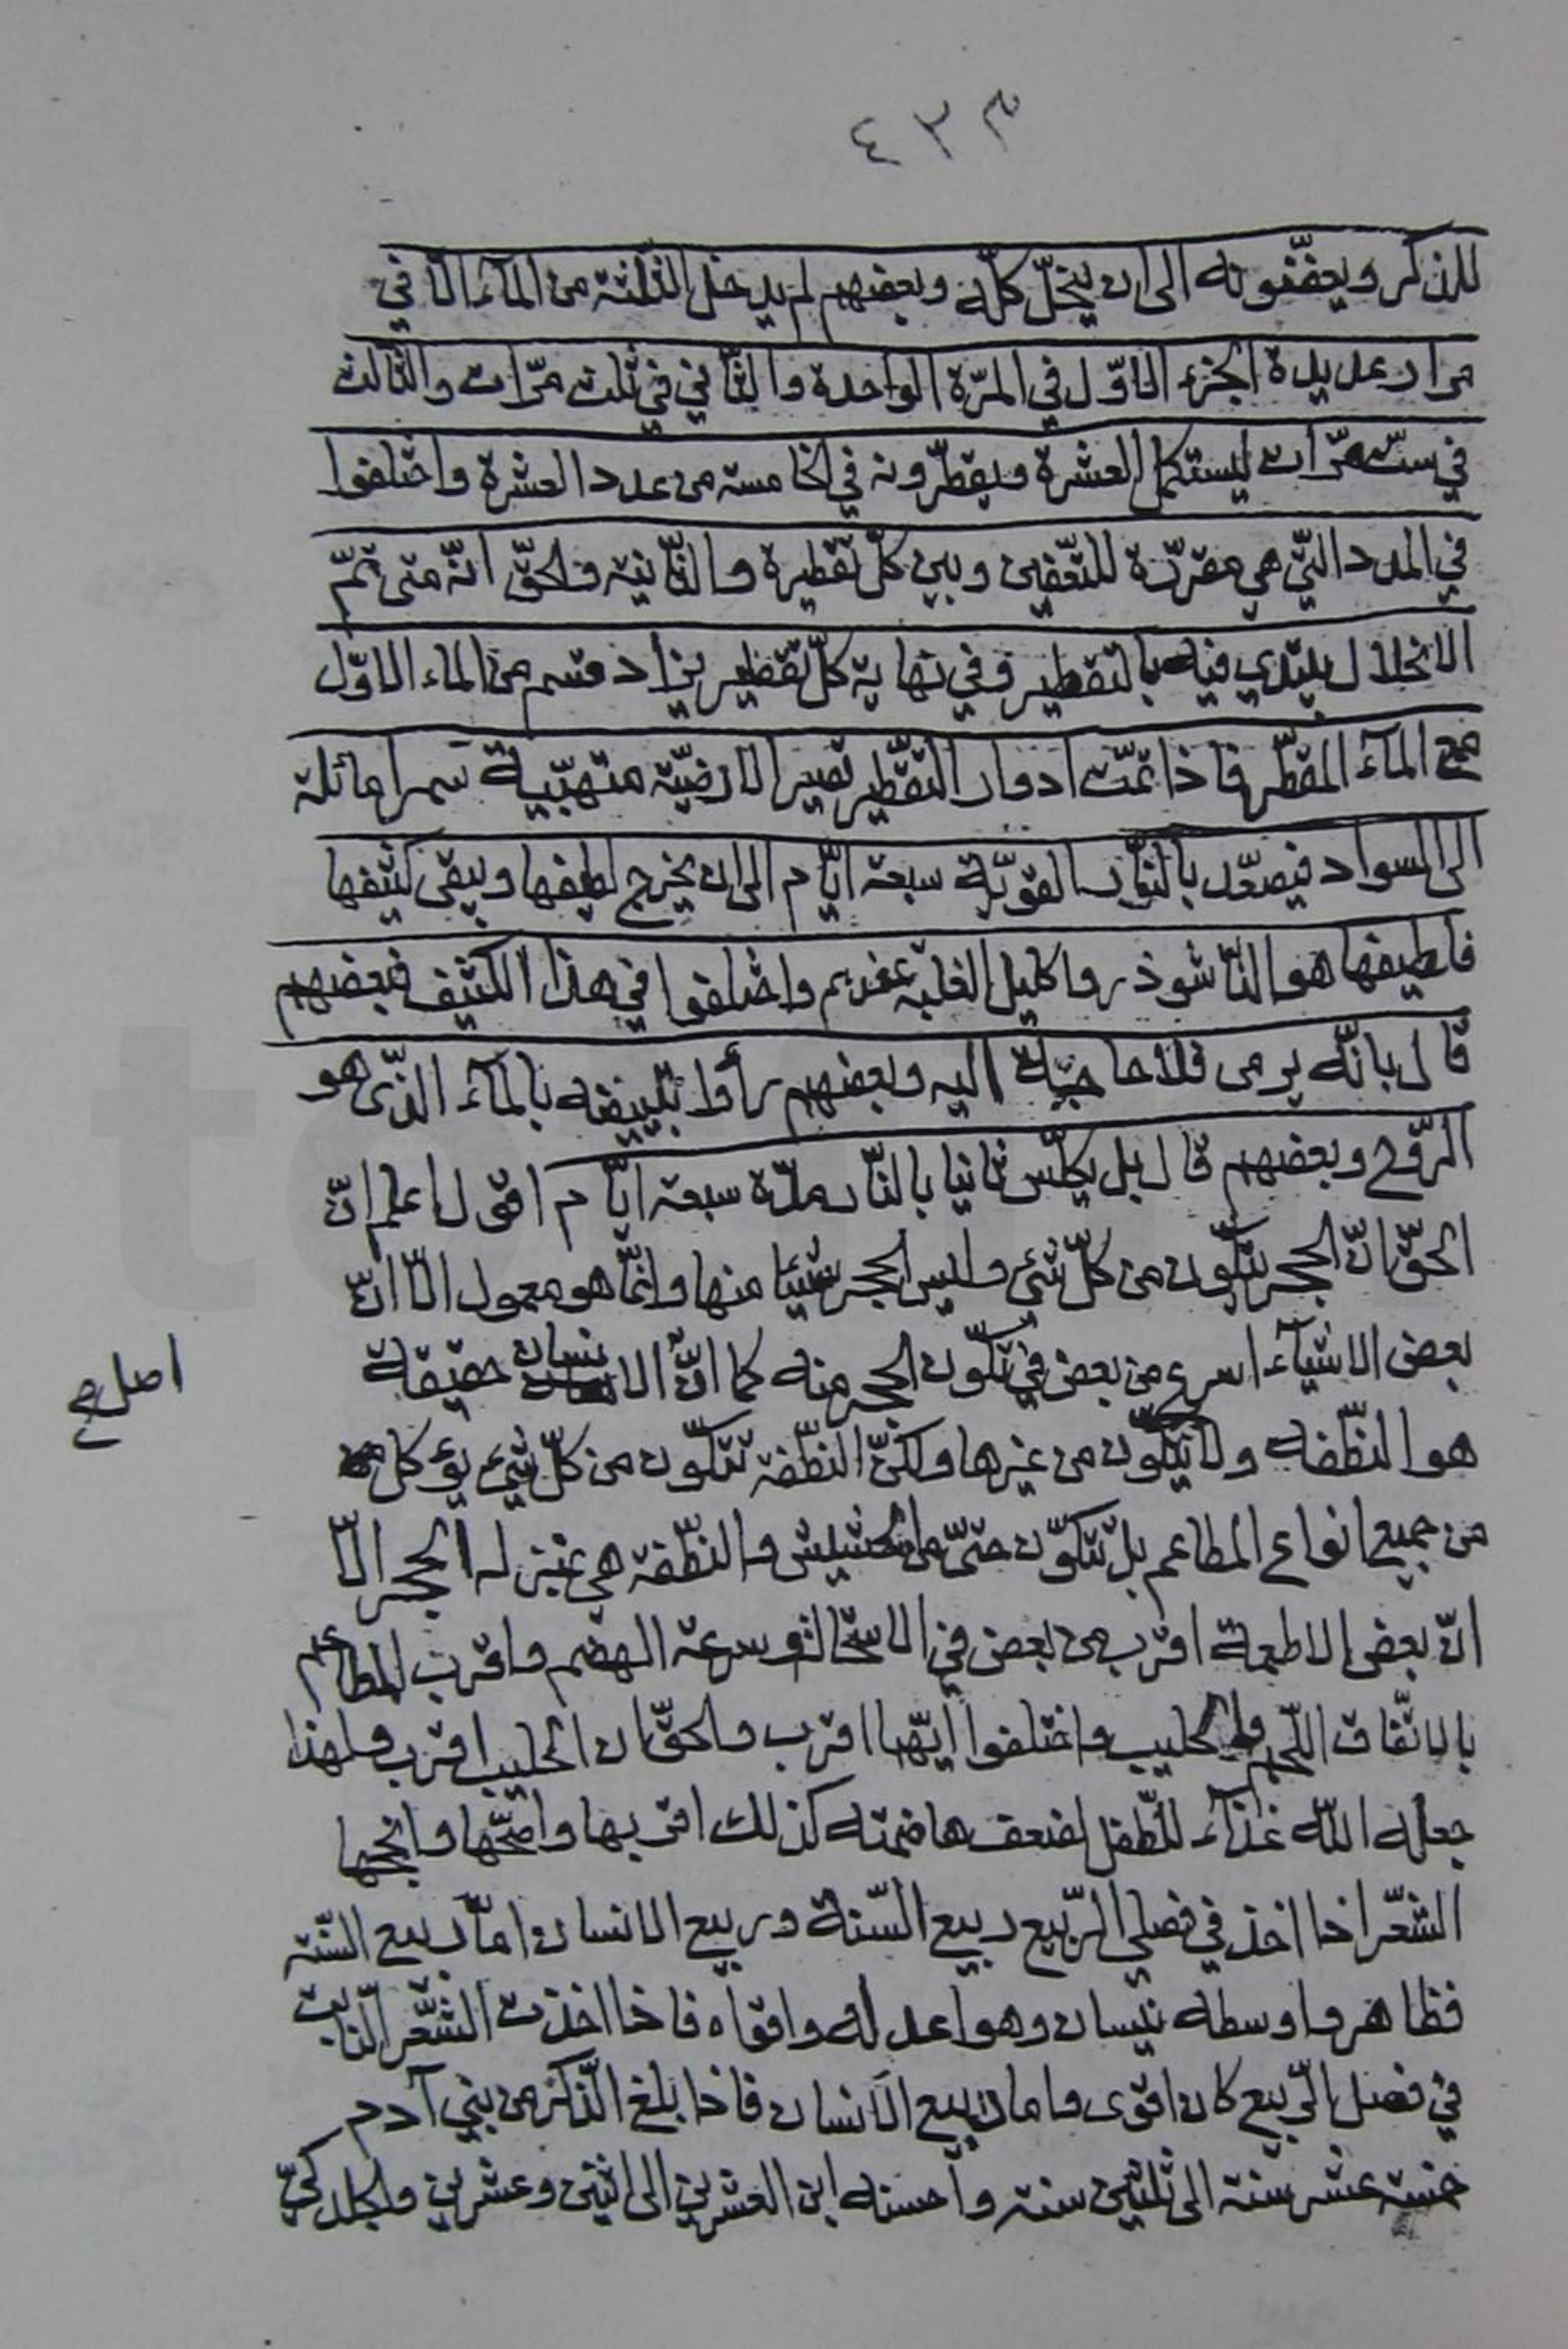 ٤٣٣
للذكر ويعفّنونه الى ان ينحلّ كلّه وبعضهم لم يدخل الثلثة من المآء الا في
مرار عديدة الجزء الاوّل في المرّة الواحدة والثّاني في ثلث مرّات والثالث
في ستّ مرّات ليستكمل العشرة ويقطّرونه في الخامسة من عدد العشرة واختلفوا
في المدد التّي هي مقرّرة للتّعفين وبين كلّ تقطيرة والثّانية والحقّ انّه متى تمّ
الانحلال يبتدي فيه بالتقطير وفي نهاية كلّ تقطير يزاد قسم من الماء الاوّل
مع المآء المقطّر فاذا تمّت ادوار التّقطير تصير الارضيّة متهبّية سمرا مائلة
الى السواد فيصعّد بالنّار القويّة سبعة ايّام الى ان يخرج لطيفها ويبقى كثيفها
فلطيفها هو النّاشوذر واكليل الغلبة عندهم واختلفوا في هذا الكثيف فبعضهم
قال بانّه يرمى فلا حاجة اليه وبعضهم رأوا بتبييضه بالمآء الذّى هو
الرّوح وبعضهم قال بل يكلّس ثانيا بالنّار مدّة سبعة ايّام اقول اعلم انّ
الحقّ انّ الحجر يتكوّن من كلّ شئ وليس الحجر شيئا منها وانّما هو معمول الّا انّ
بعض الاشيآء اسرع من بعض في تكوّن الحجر منه كما انّ الانسان حقيقة
اصل صح
هو النّطفه ولا يتكوّن من غيرها ولكنّ النّطفة تتكوّن من كلّ شئ يؤكل
من جميع انواع المطاعم بل تتكوّن حتّى من الحشيش والنّطفة هي بمنزلة الحجر الّا
انّ بعض الاطعمة اقرب من بعض في الاستحالة وسرعة الهضم واقرب المطاعم
بالاتّفاق اللّحم والحليب واختلفوا ايّهما اقرب والحقّ ان الحليب اقرب ولهذا
جعله اللّه غذآء للطّفل لضعف هاضمته كذلك اقربها واصحّها وانجحها
الشّعر اذا اخذ في فصلي الرّبيع ربيع السّنة وربيع الانسان امّا ربيع السّنة
فظاهر واوسطه نيسان وهو اعدله واقواه فاذا اخذت الشّعر النّابت
في فصل الرّبيع كان اقوى واما ربيع الانسان فاذا بلغ الذّكر من بني آدم
خمسة عشر سنة الى ثلثين سنة واحسنه ابن العشرين الى اثنين وعشرين ولكل